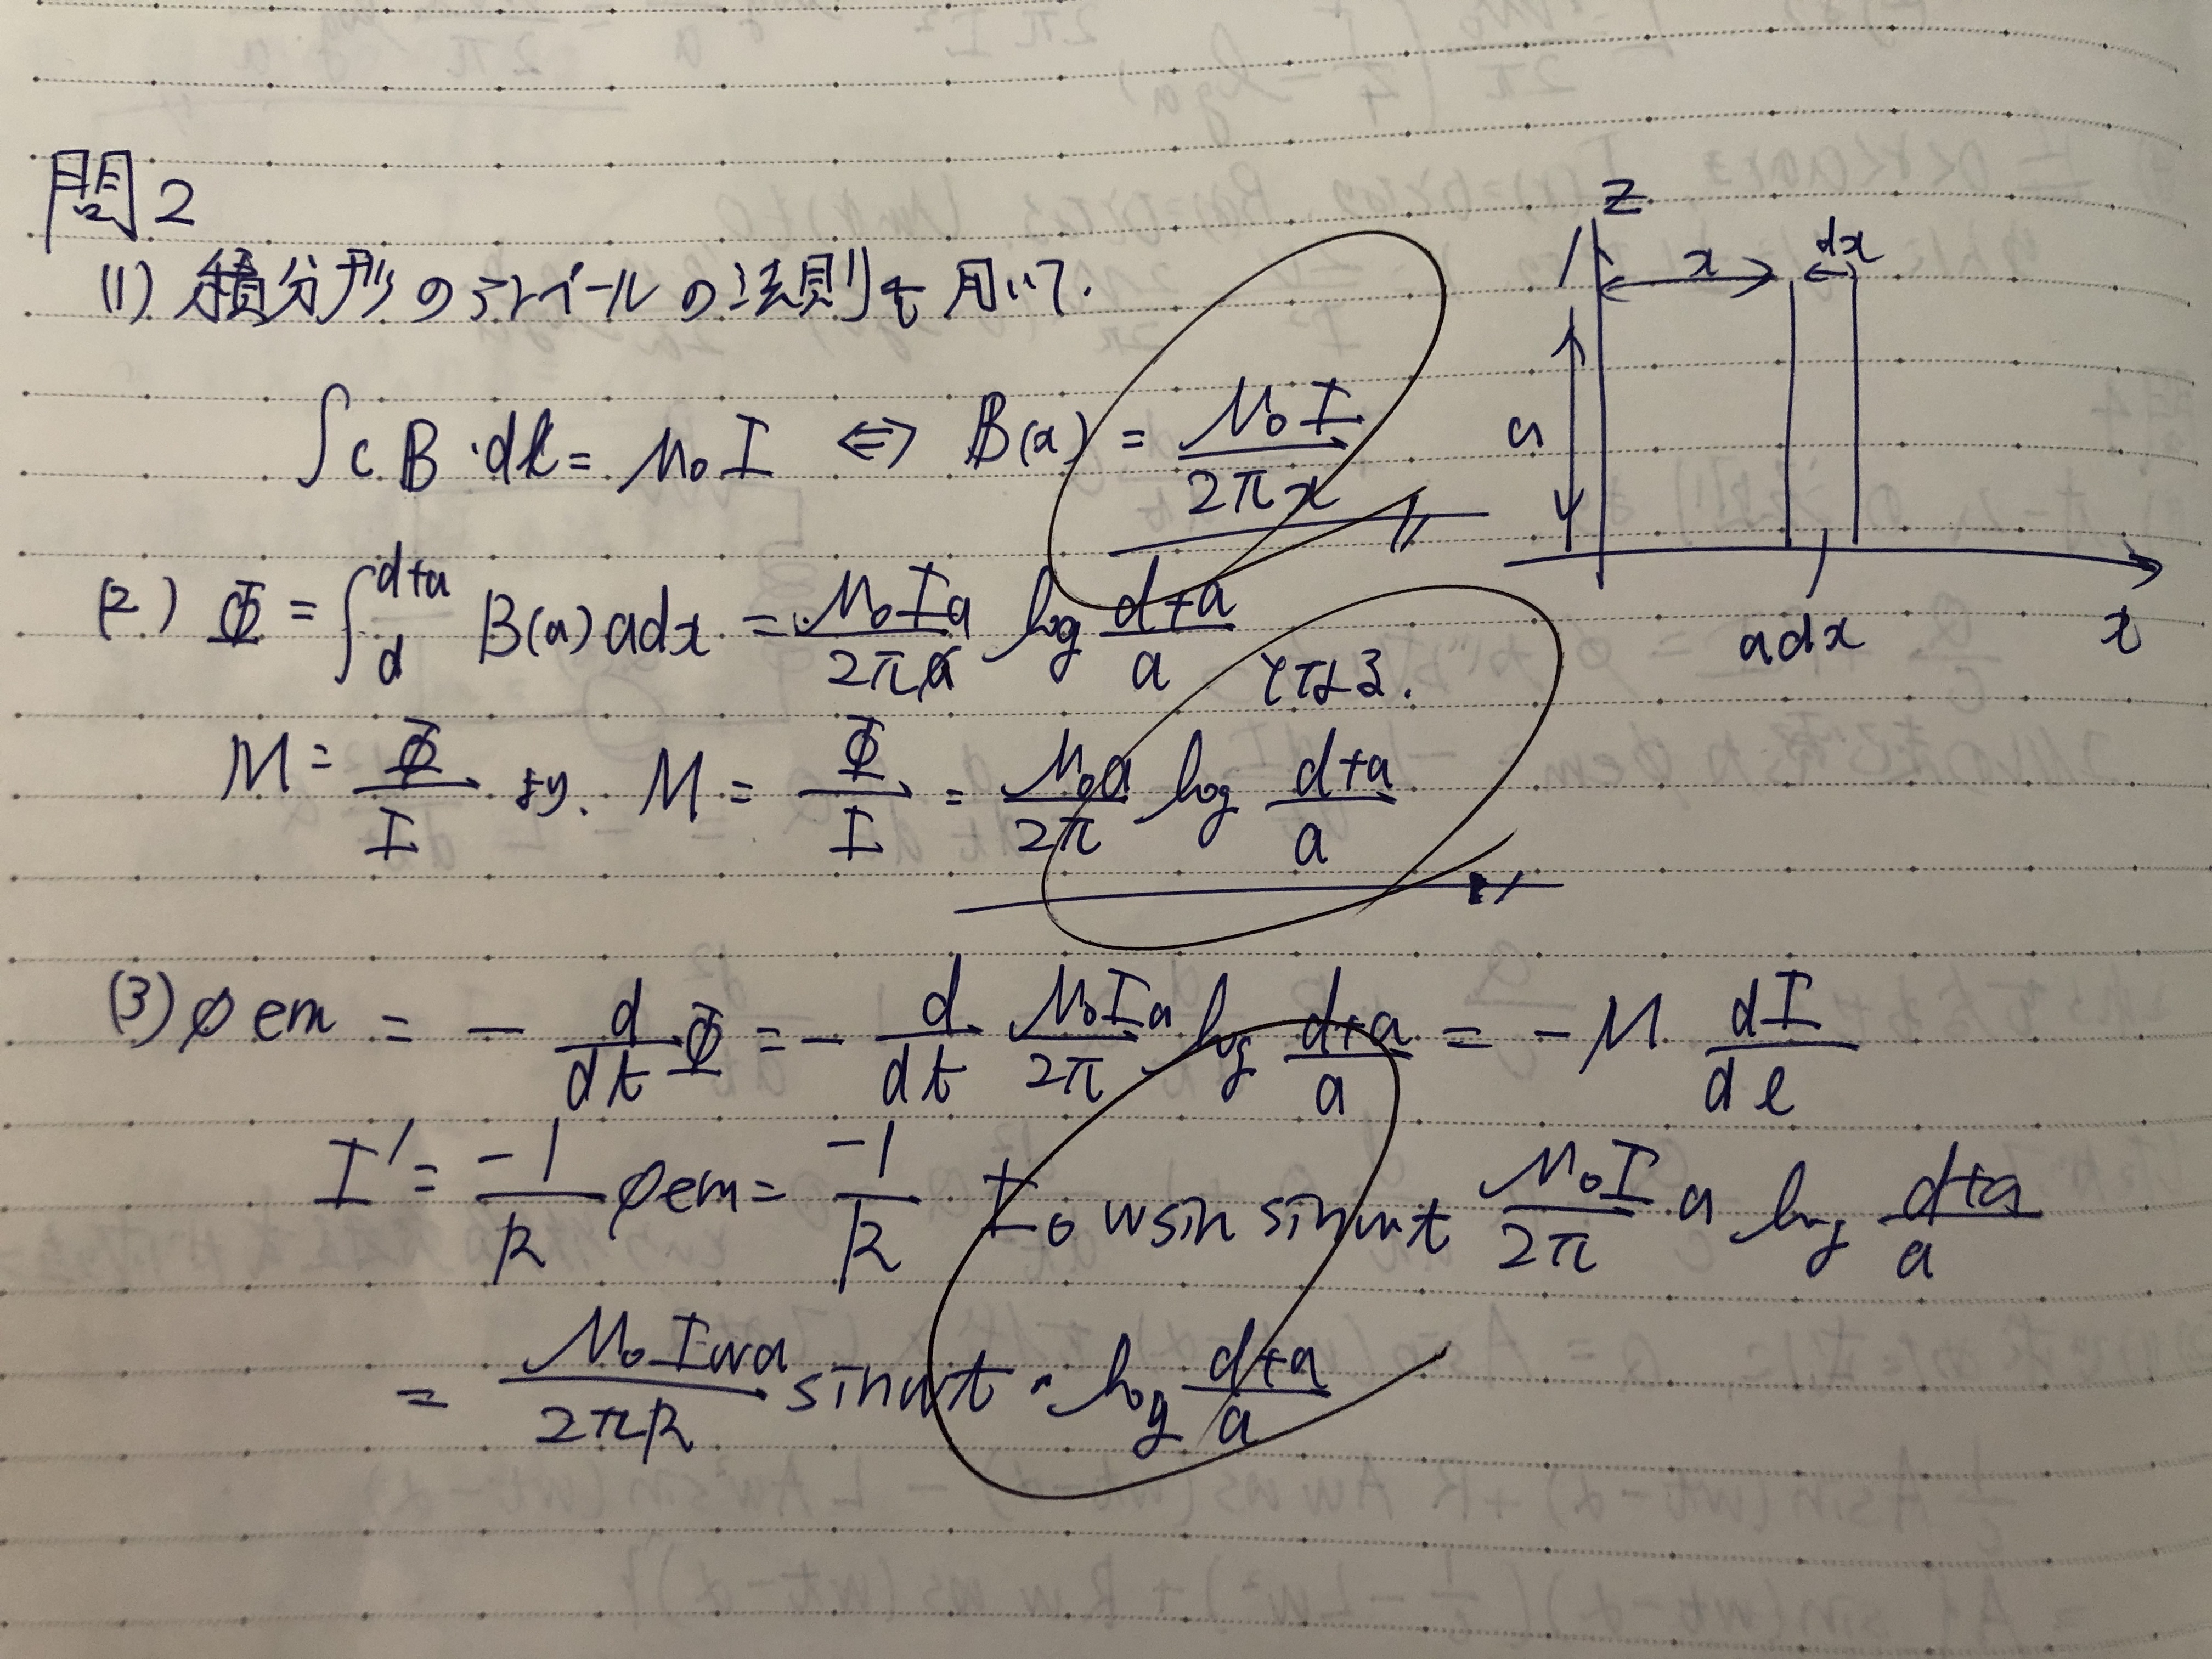 問2
(1) 積分形のアンペールの法則を用いて.
∫c B・dl = μ0 I ⇔ B(x) = μ0 I / 2πx
(2) Φ = ∫_d^{d+a} B(a) a dx = μ0 I a / 2π log (d+a)/a となる.
M = Φ/I より. M = Φ/I = μ0 a / 2π log (d+a)/a
(3) φem = - d/dt Φ = - d/dt μ0 I a / 2π log (d+a)/a = - M dI/dt
I' = -1/R φem = -1/R I0 w sin sin wt μ0 I / 2π a log (d+a)/a
= μ0 I w a / 2πR sin wt・log (d+a)/a
z
x
dx
a
a dx
x